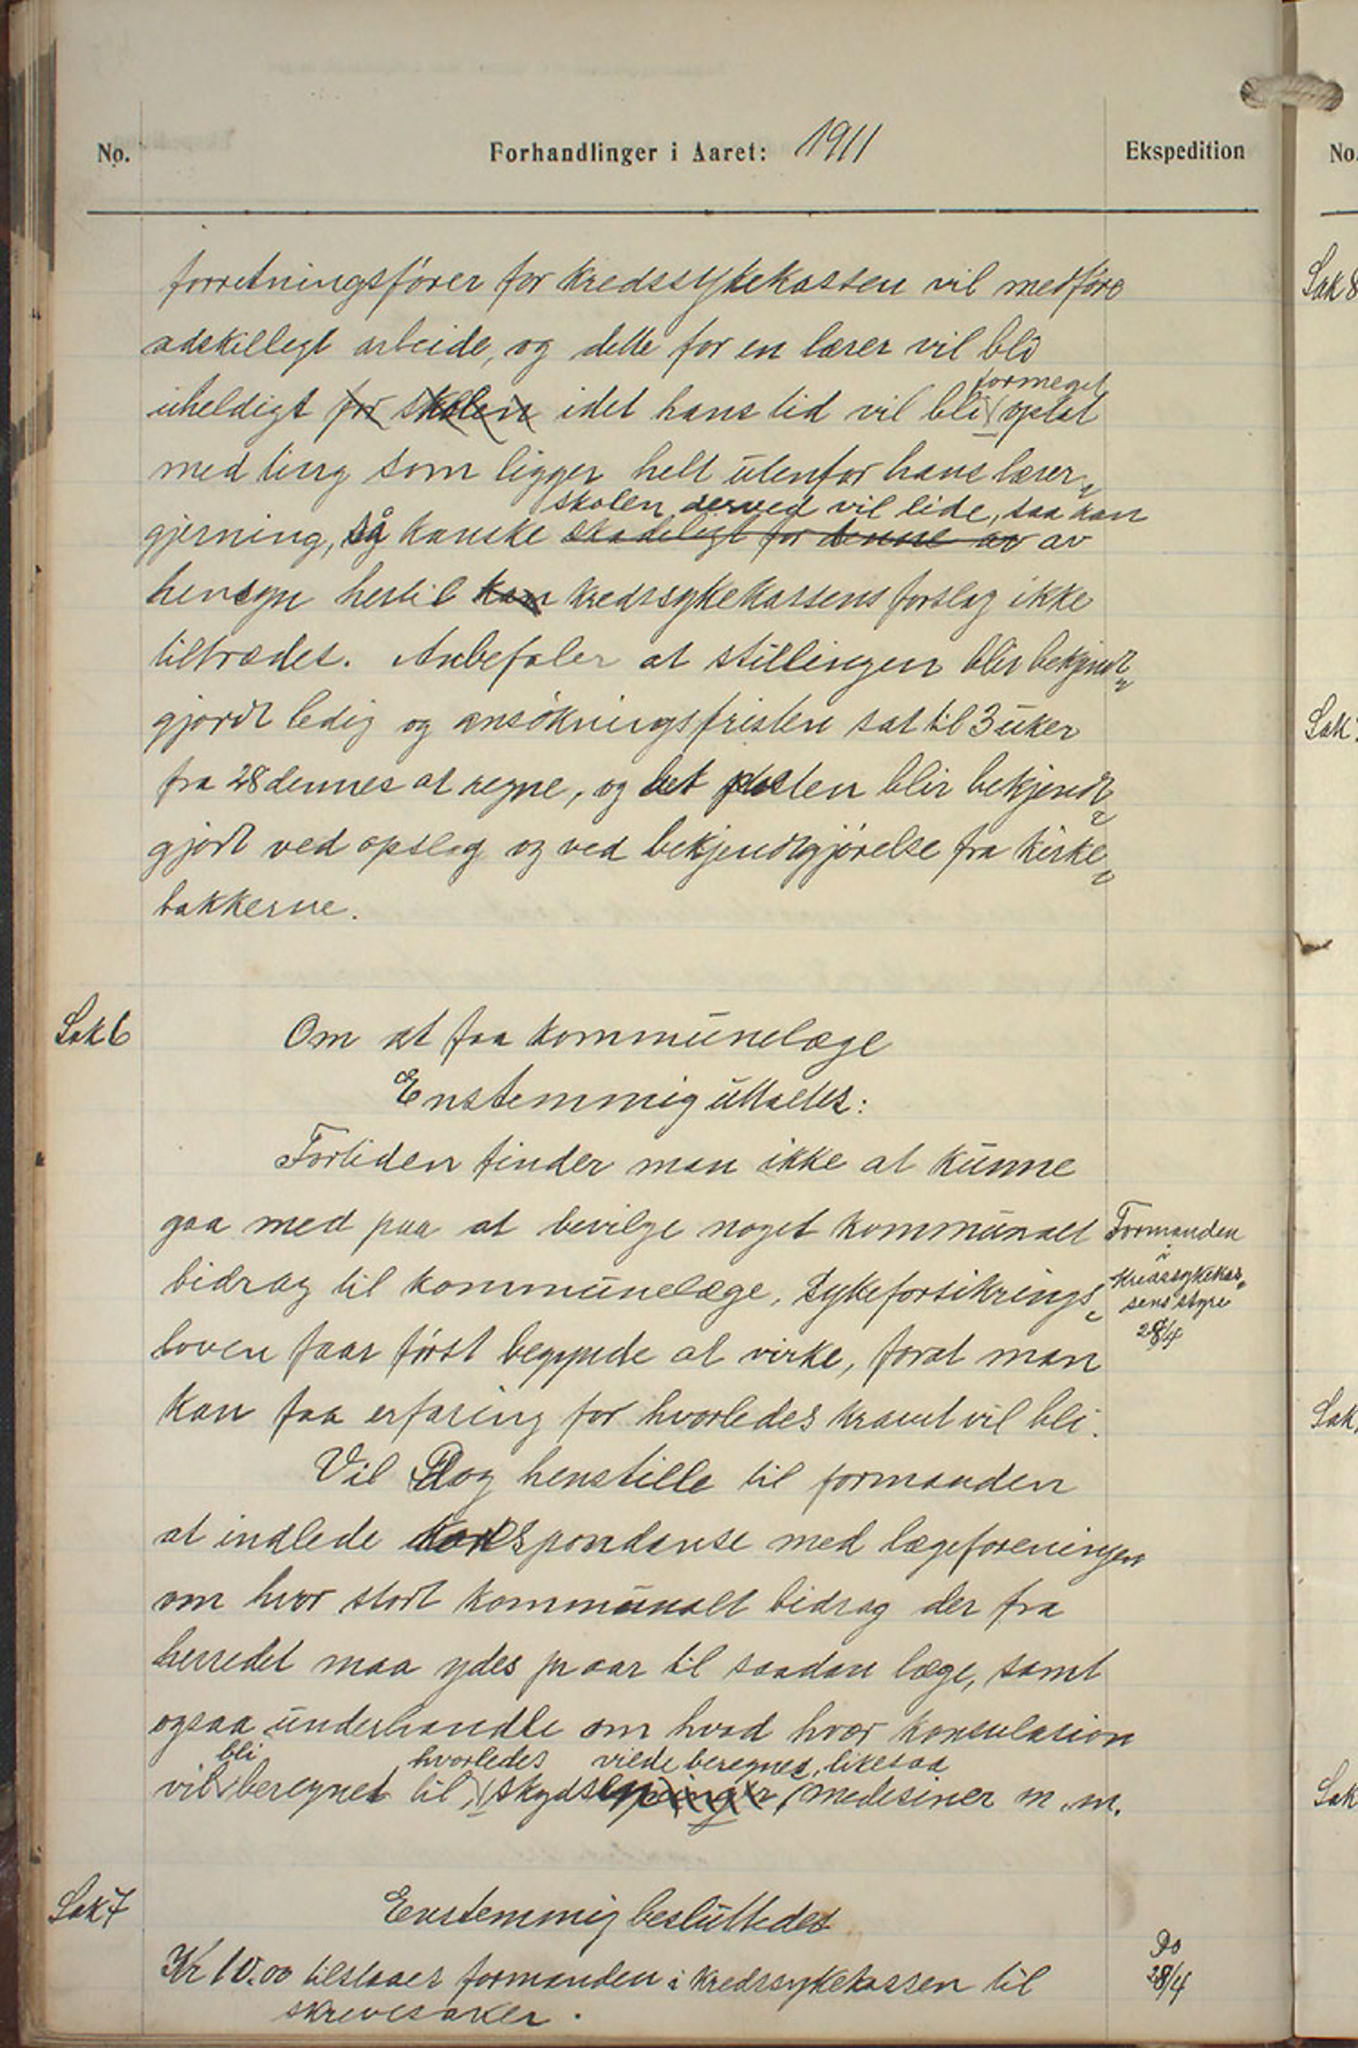 No. Forhandlinger i Aaret: 1911 Ekspedition
forretningsfører for kredssykekassen vil medføre
adskilligt arbeide, og dette for en lærer vil bli
uheldigt for skolen idet hans tid vil bli formeget optat
med ting som ligger helt utenfor hans lærer-
gjerning, så kanske skolen derved vil lide, saa kan
skadeligt for denne av av
hensyn hertil kan kredssykekassens forslag ikke
tiltrædes. Anbefaler at stillingen blir bekjendt-
gjordt ledig og ansøkningsfristen sat til 3 uker
fra 28 dennes at regne, og posten blir bekjendt-
gjort ved opslag og ved bekjendtgjørelse fra kirke-
bakkerne.
Sak 6 Om at faa kommunelæge
Enstemmig uttaltes:
Fortiden finder man ikke at kunne
gaa med paa at bevilge noget kommunalt
bidrag til kommunelæge. Sykeforsikrings-
loven faar først begynde at virke, forat man
kan faa erfaring for hvorledes kravet vil bli.
Formanden
i
kredssykekas-
sens styre
28/4
Vil Dog henstille til formanden
at indlede korespondanse med lægeforeningen
om hvor stort kommunalt bidrag der fra
herredet maa ydes pr aar til saadan læge, samt
ogsaa underhandle om hvad hver konsulasion
vil bli beregnet til, hvorledes skyds vilde beregnes, likesaa medesiner m.m.
Sak 7 Enstemmig besluttedes
Kr 10.00 tilstaaes formanden i kredssykekassen til
skrivesaker.
Do
28/4
No.
Sak 8
Sak
Sak
Sak